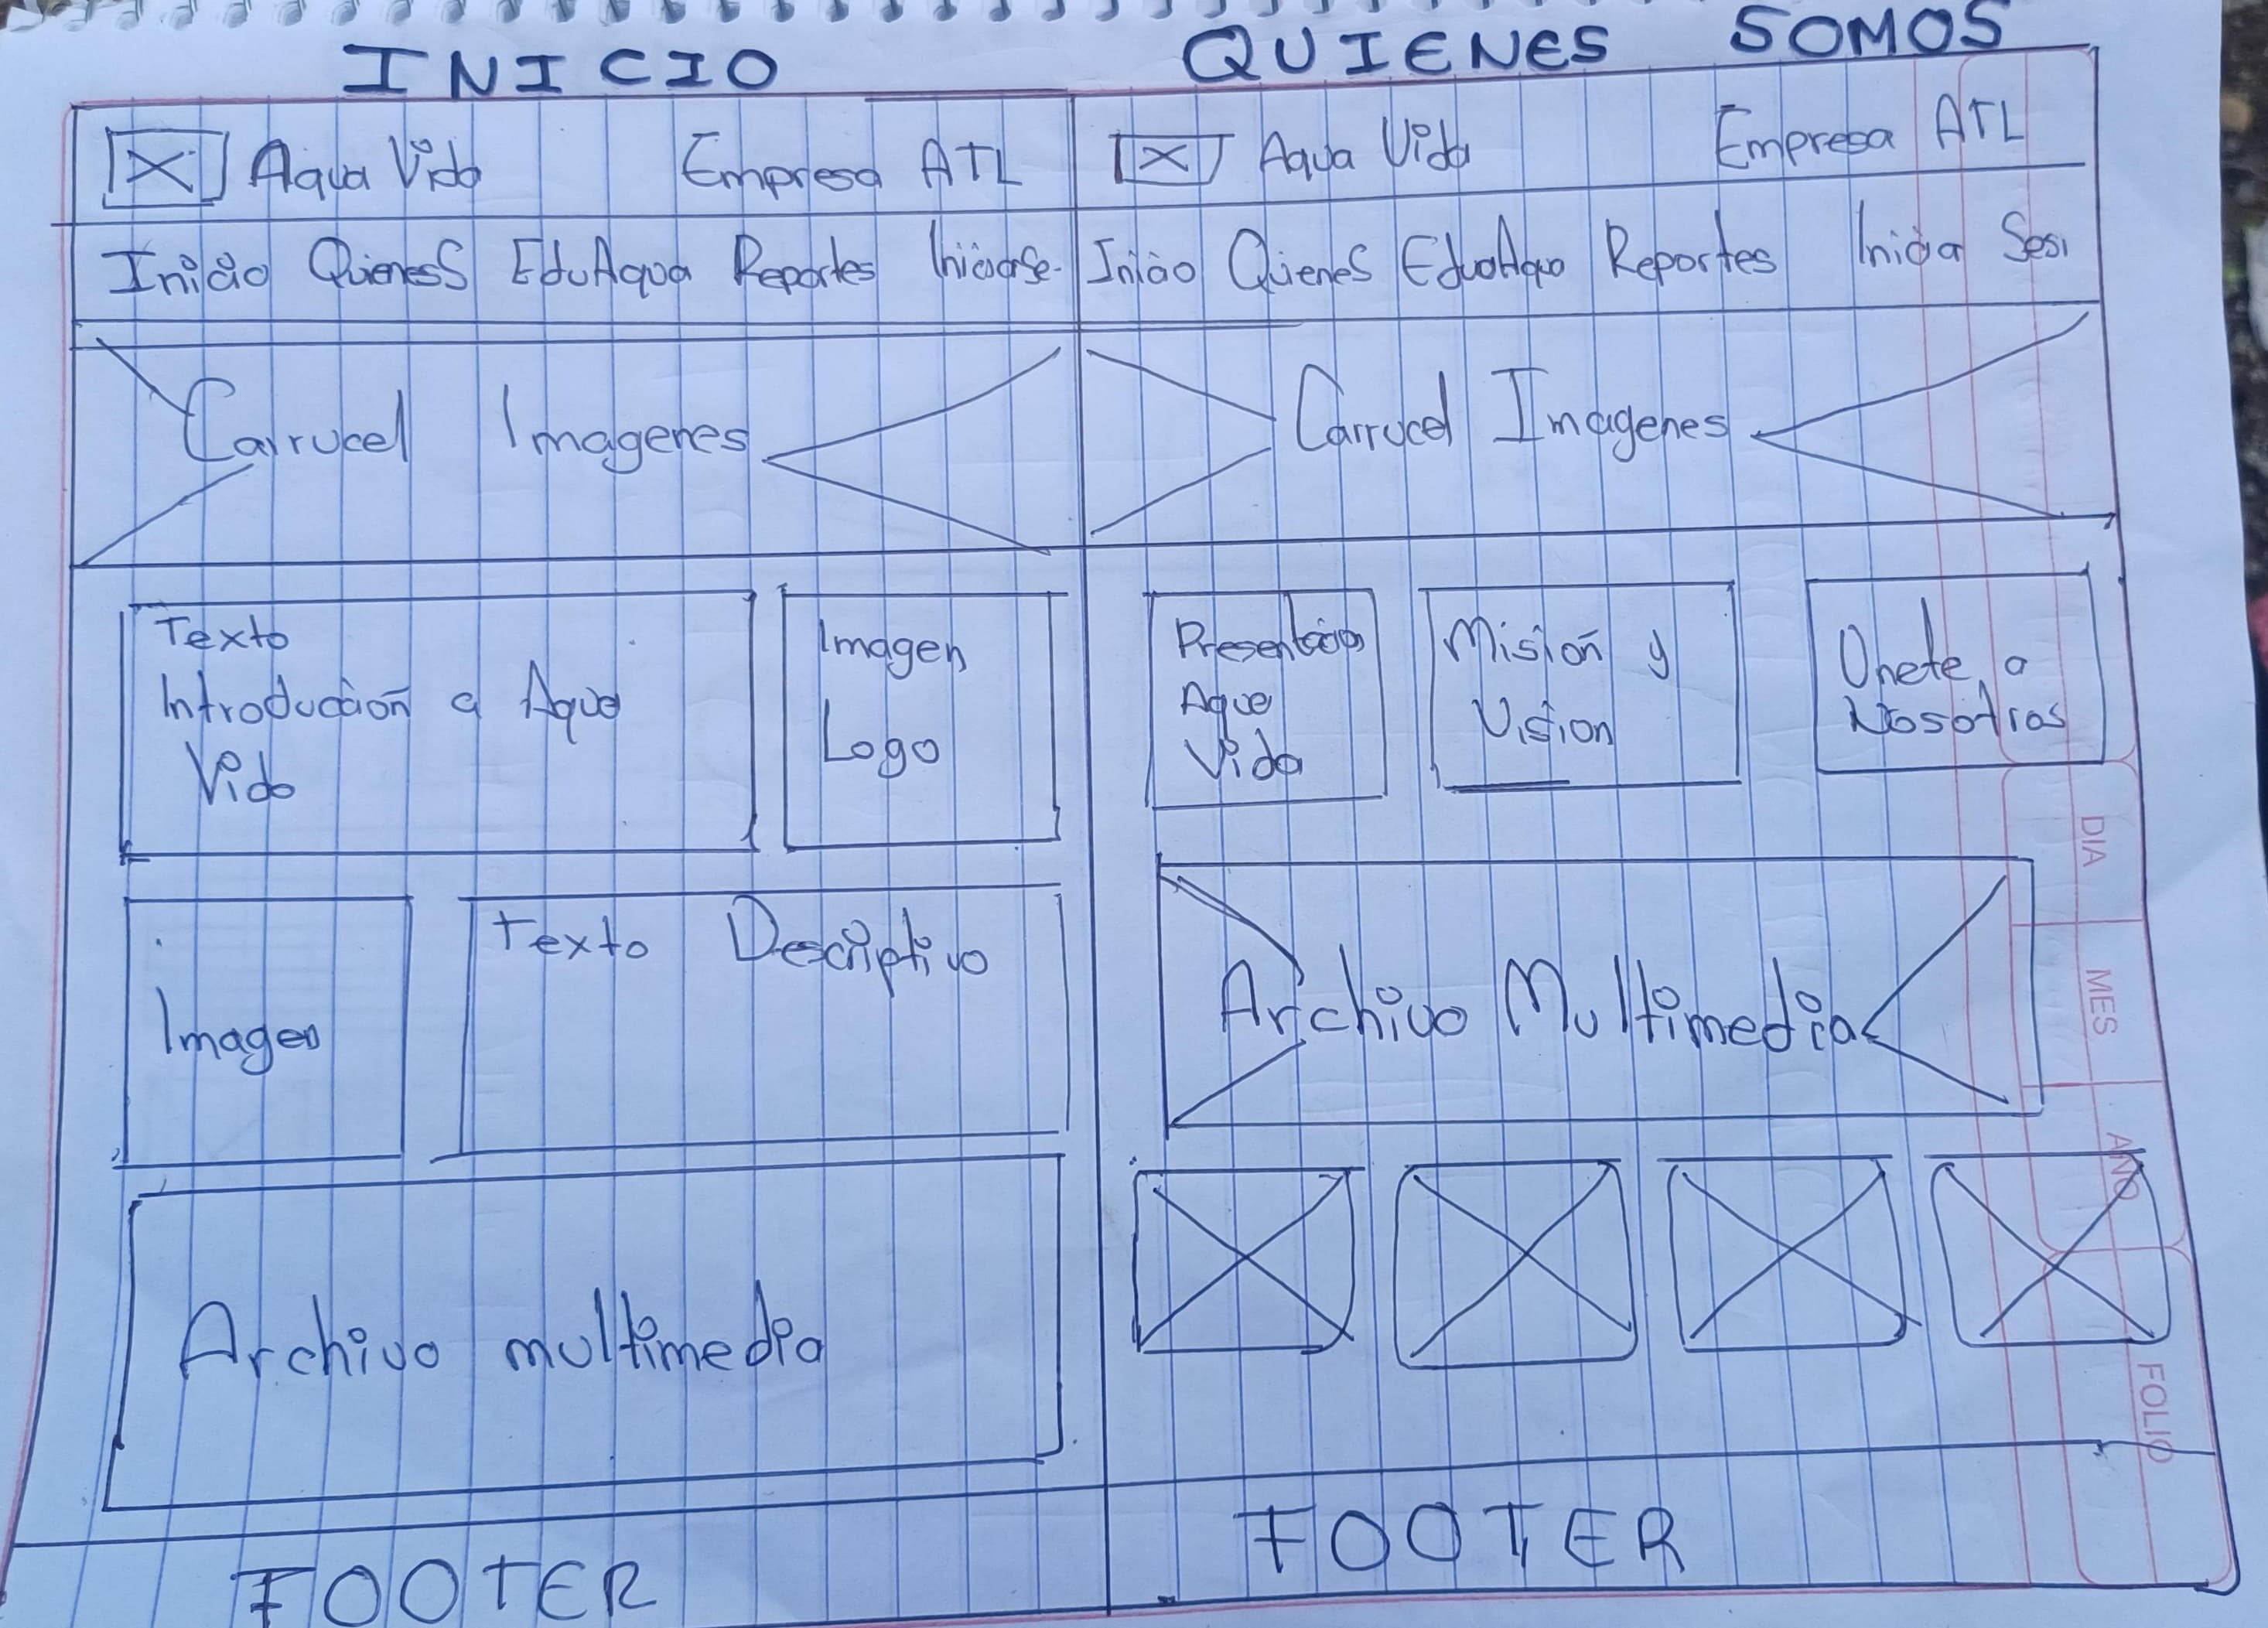 INICIO
Aqua Vida Empresa ATL
Inicio QuienesS EduAqua Reportes Iniciarse
Carrucel Imagenes
Texto
Introducción a Aqua
Vida
Imagen
Logo
Imagen
Texto Descriptivo
Archivo multimedia
FOOTER
QUIENES SOMOS
Aqua Vida Empresa ATL
Inicio Quienes EduaAqua Reportes Inicia Sesi
Carrucel Imagenes
Presentación
Aqua
Vida
Misión y
Vision
Unete a
Nosotros
Archivo Multimedia
FOOTER
DIA
MES
AÑO
FOLIO